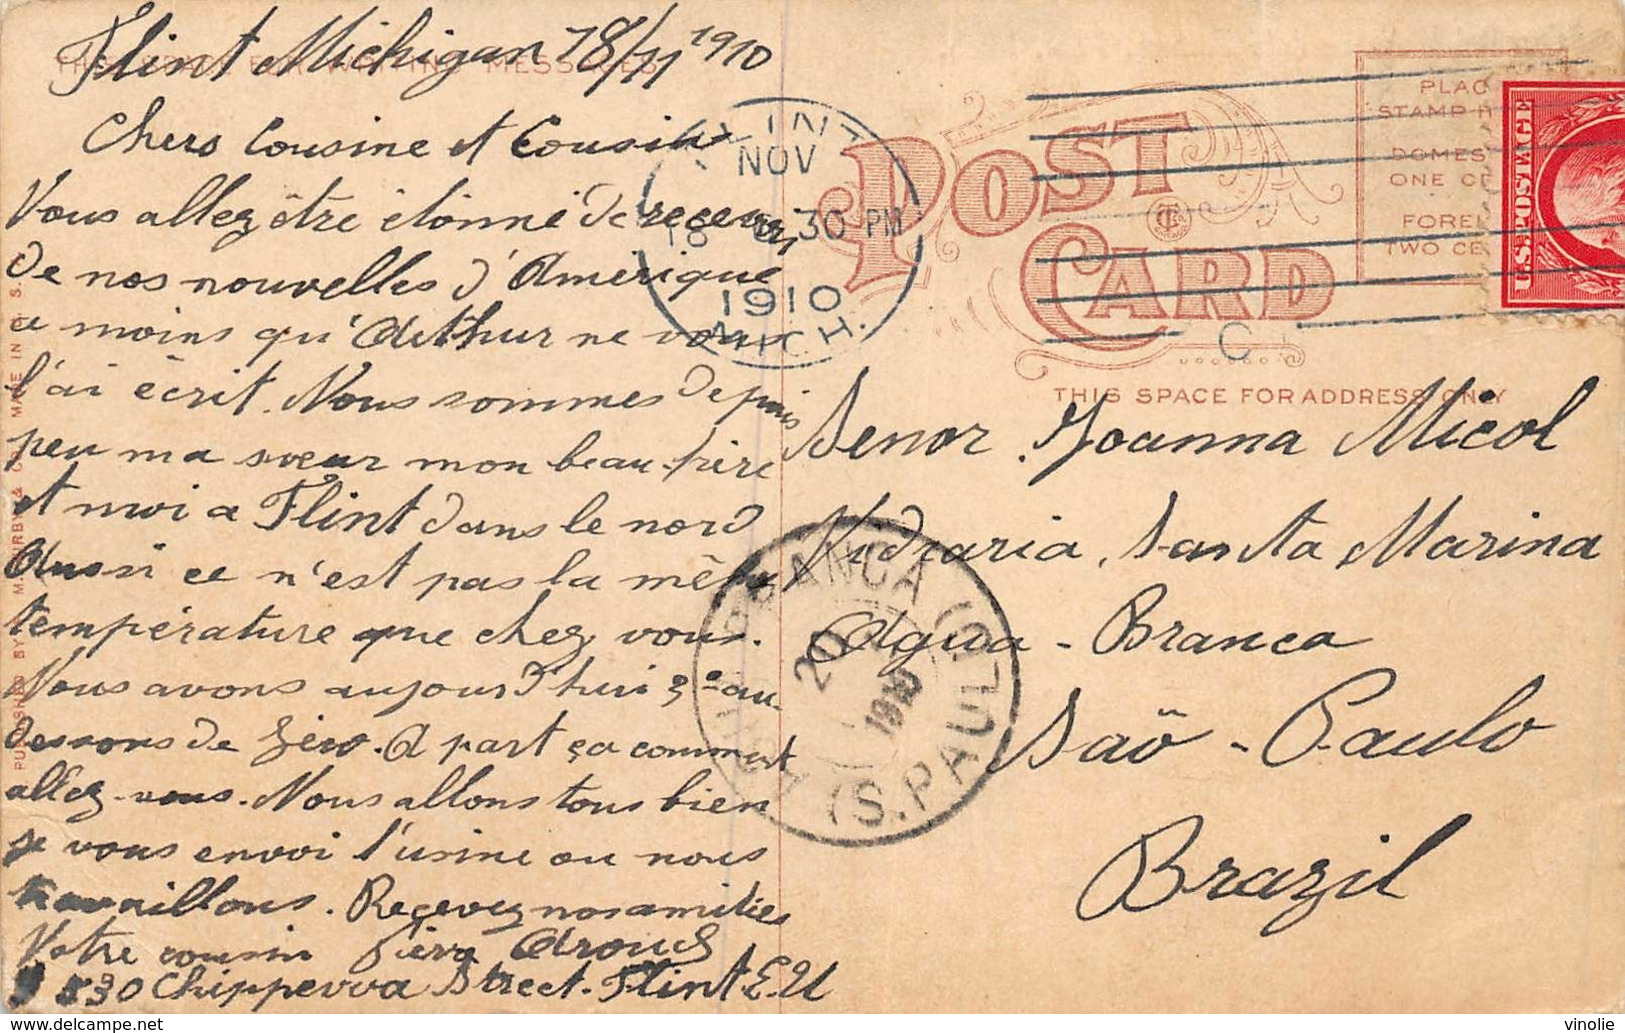 Flint Michigan 18/11 1910
THIS SPACE FOR WRITING MESSAGES
Chers Cousine et Cousin
Vous allez être étonné de recevoir
de nos nouvelles d'Amérique
a moins qu'Arthur ne vous
l'ai écrit. Nous sommes depuis
peu ma sœur mon beau-frère
et moi a Flint dans le nord
Aussi ce n'est pas la même
température que chez vous.
Nous avons aujourd'hui 3° au
dessous de zéro. A part ça comment
allez-vous. Nous allons tous bien
je vous envoi l'usine ou nous
travaillons. Recevez nos amitiés
Votre cousin
530 Chippewa Street. Flint. E. U
FLINT
NOV
18
30 PM
1910
MICH.
POST
CARD
PLAC
STAMP
DOMES
ONE CE
FOREI
TWO CE
U.S. POSTAGE
C
THIS SPACE FOR ADDRESS ONLY
Senor Joanna Micol
Vidraria Santa Marina
Agua-Branca
Saõ-Paulo
Brazil
BRANCA (S. PAULO)
20
1910
(S. PAULO)
PUBLISHED BY
MADE IN U.S.A.
vinolie